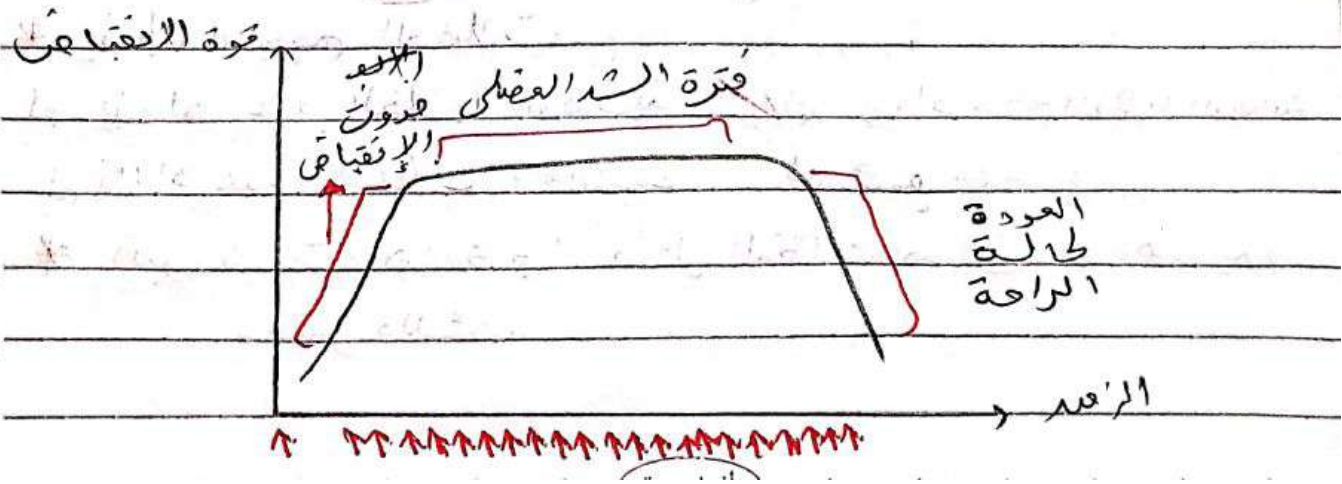 قوة الانقباض
فترة الشد العضلي
حدوث
الإنقباض
العودة
لحالة
الراحة
الزمن